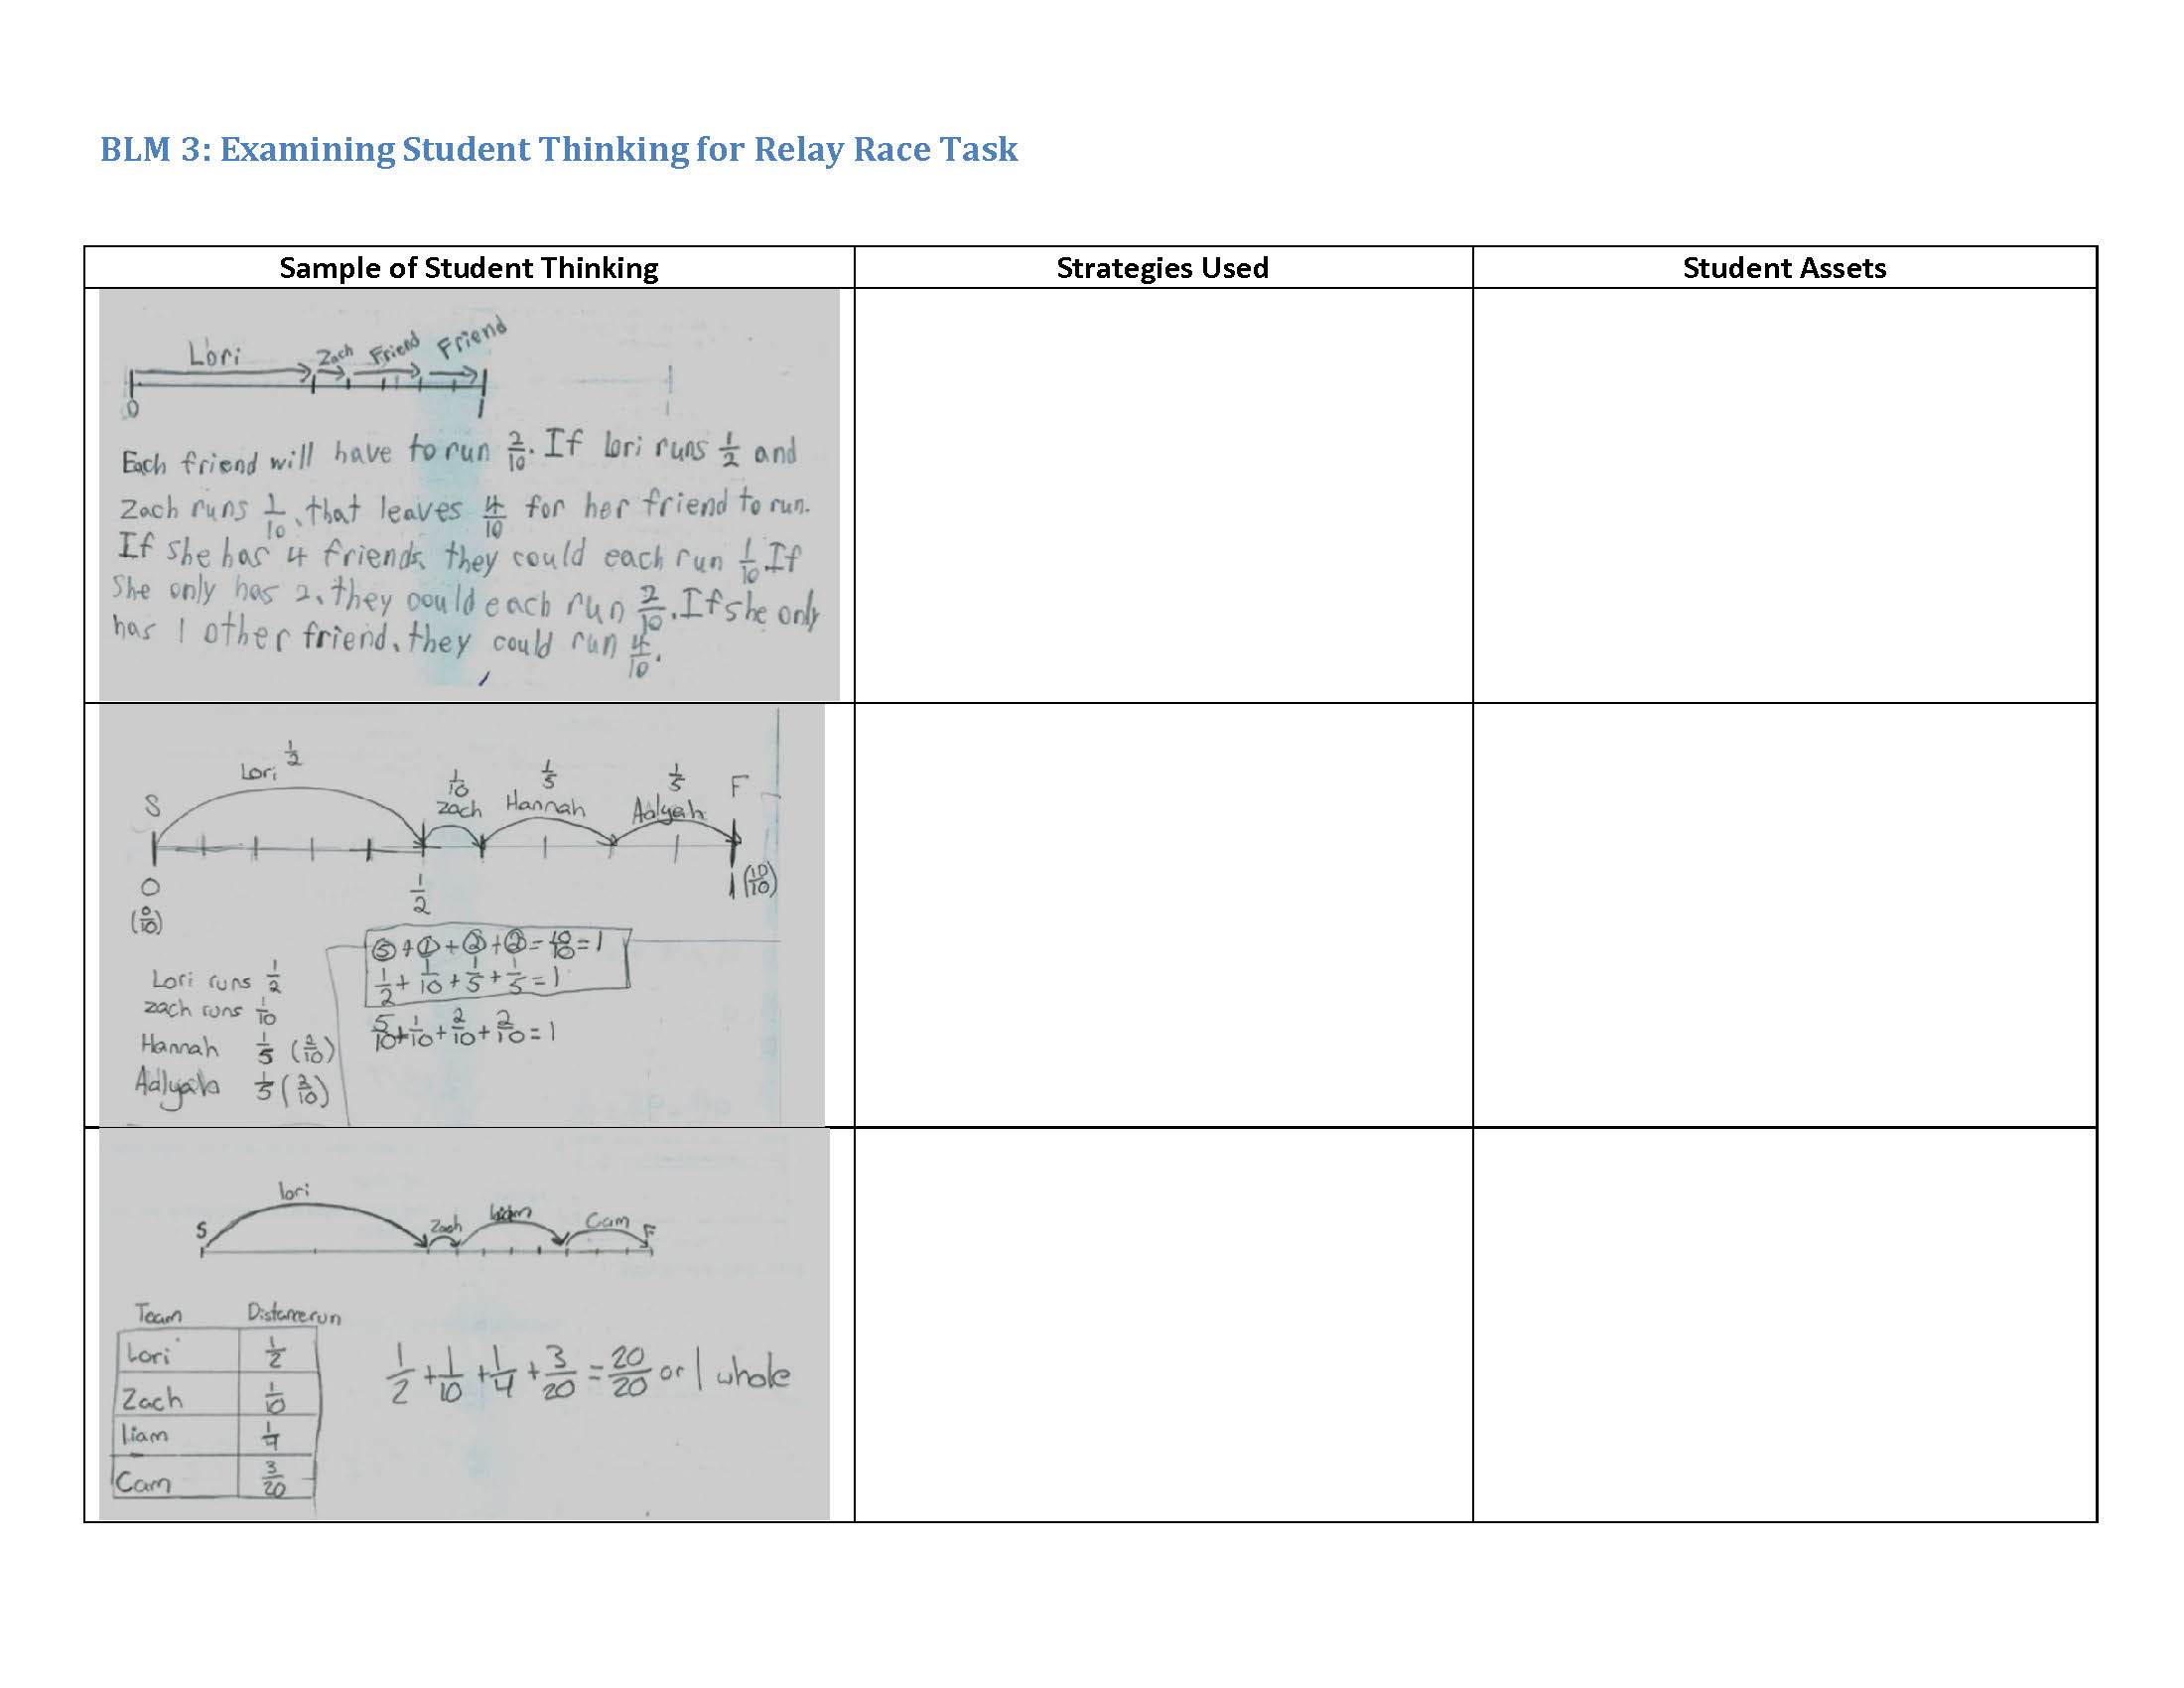 BLM 3: Examining Student Thinking for Relay Race Task
Sample of Student Thinking
Strategies Used
Student Assets
Lori Zach Friend Friend
0 1
Each friend will have to run 2/10. If Lori runs 1/2 and
Zach runs 1/10, that leaves 4/10 for her friend to run.
If she has 4 friends, they could each run 1/10. If
she only has 2, they could each run 2/10. If she only
has 1 other friend, they could run 4/10.
Lori 1/2
1/10 Zach
1/5 Hannah
1/5 Aalyah
S F
0 (0/10) 1/2 1 (10/10)
Lori runs 1/2
Zach runs 1/10
Hannah 1/5 (2/10)
Aalyah 1/5 (2/10)
5 + 1 + 2 + 2 = 10/10 = 1
1/2 + 1/10 + 1/5 + 1/5 = 1
5/10 + 1/10 + 2/10 + 2/10 = 1
S lori Zach Liam Cam F
Team Distance run
Lori 1/2
Zach 1/10
Liam 1/4
Cam 3/20
1/2 + 1/10 + 1/4 + 3/20 = 20/20 or 1 whole